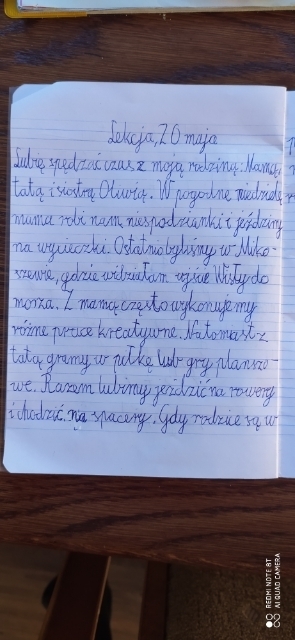 Lekcja, 20 maja
Lubię spędzać czas z moją rodziną: Mamą,
tatą i siostrą Oliwią. W pogodne niedziele
mama robi nam niespodzianki i jeździmy
na wycieczki. Ostatnio byliśmy w Miko-
szewie, gdzie widziałam ujście Wisły do
morza. Z mamą często wykonujemy
różne prace kreatywne. Natomiast z
tatą gramy w piłkę lub gry planszo-
we. Razem lubimy jeździć na rowery
i chodzić na spacery. Gdy rodzice są w
REDMI NOTE 8T
AI QUAD CAMERA